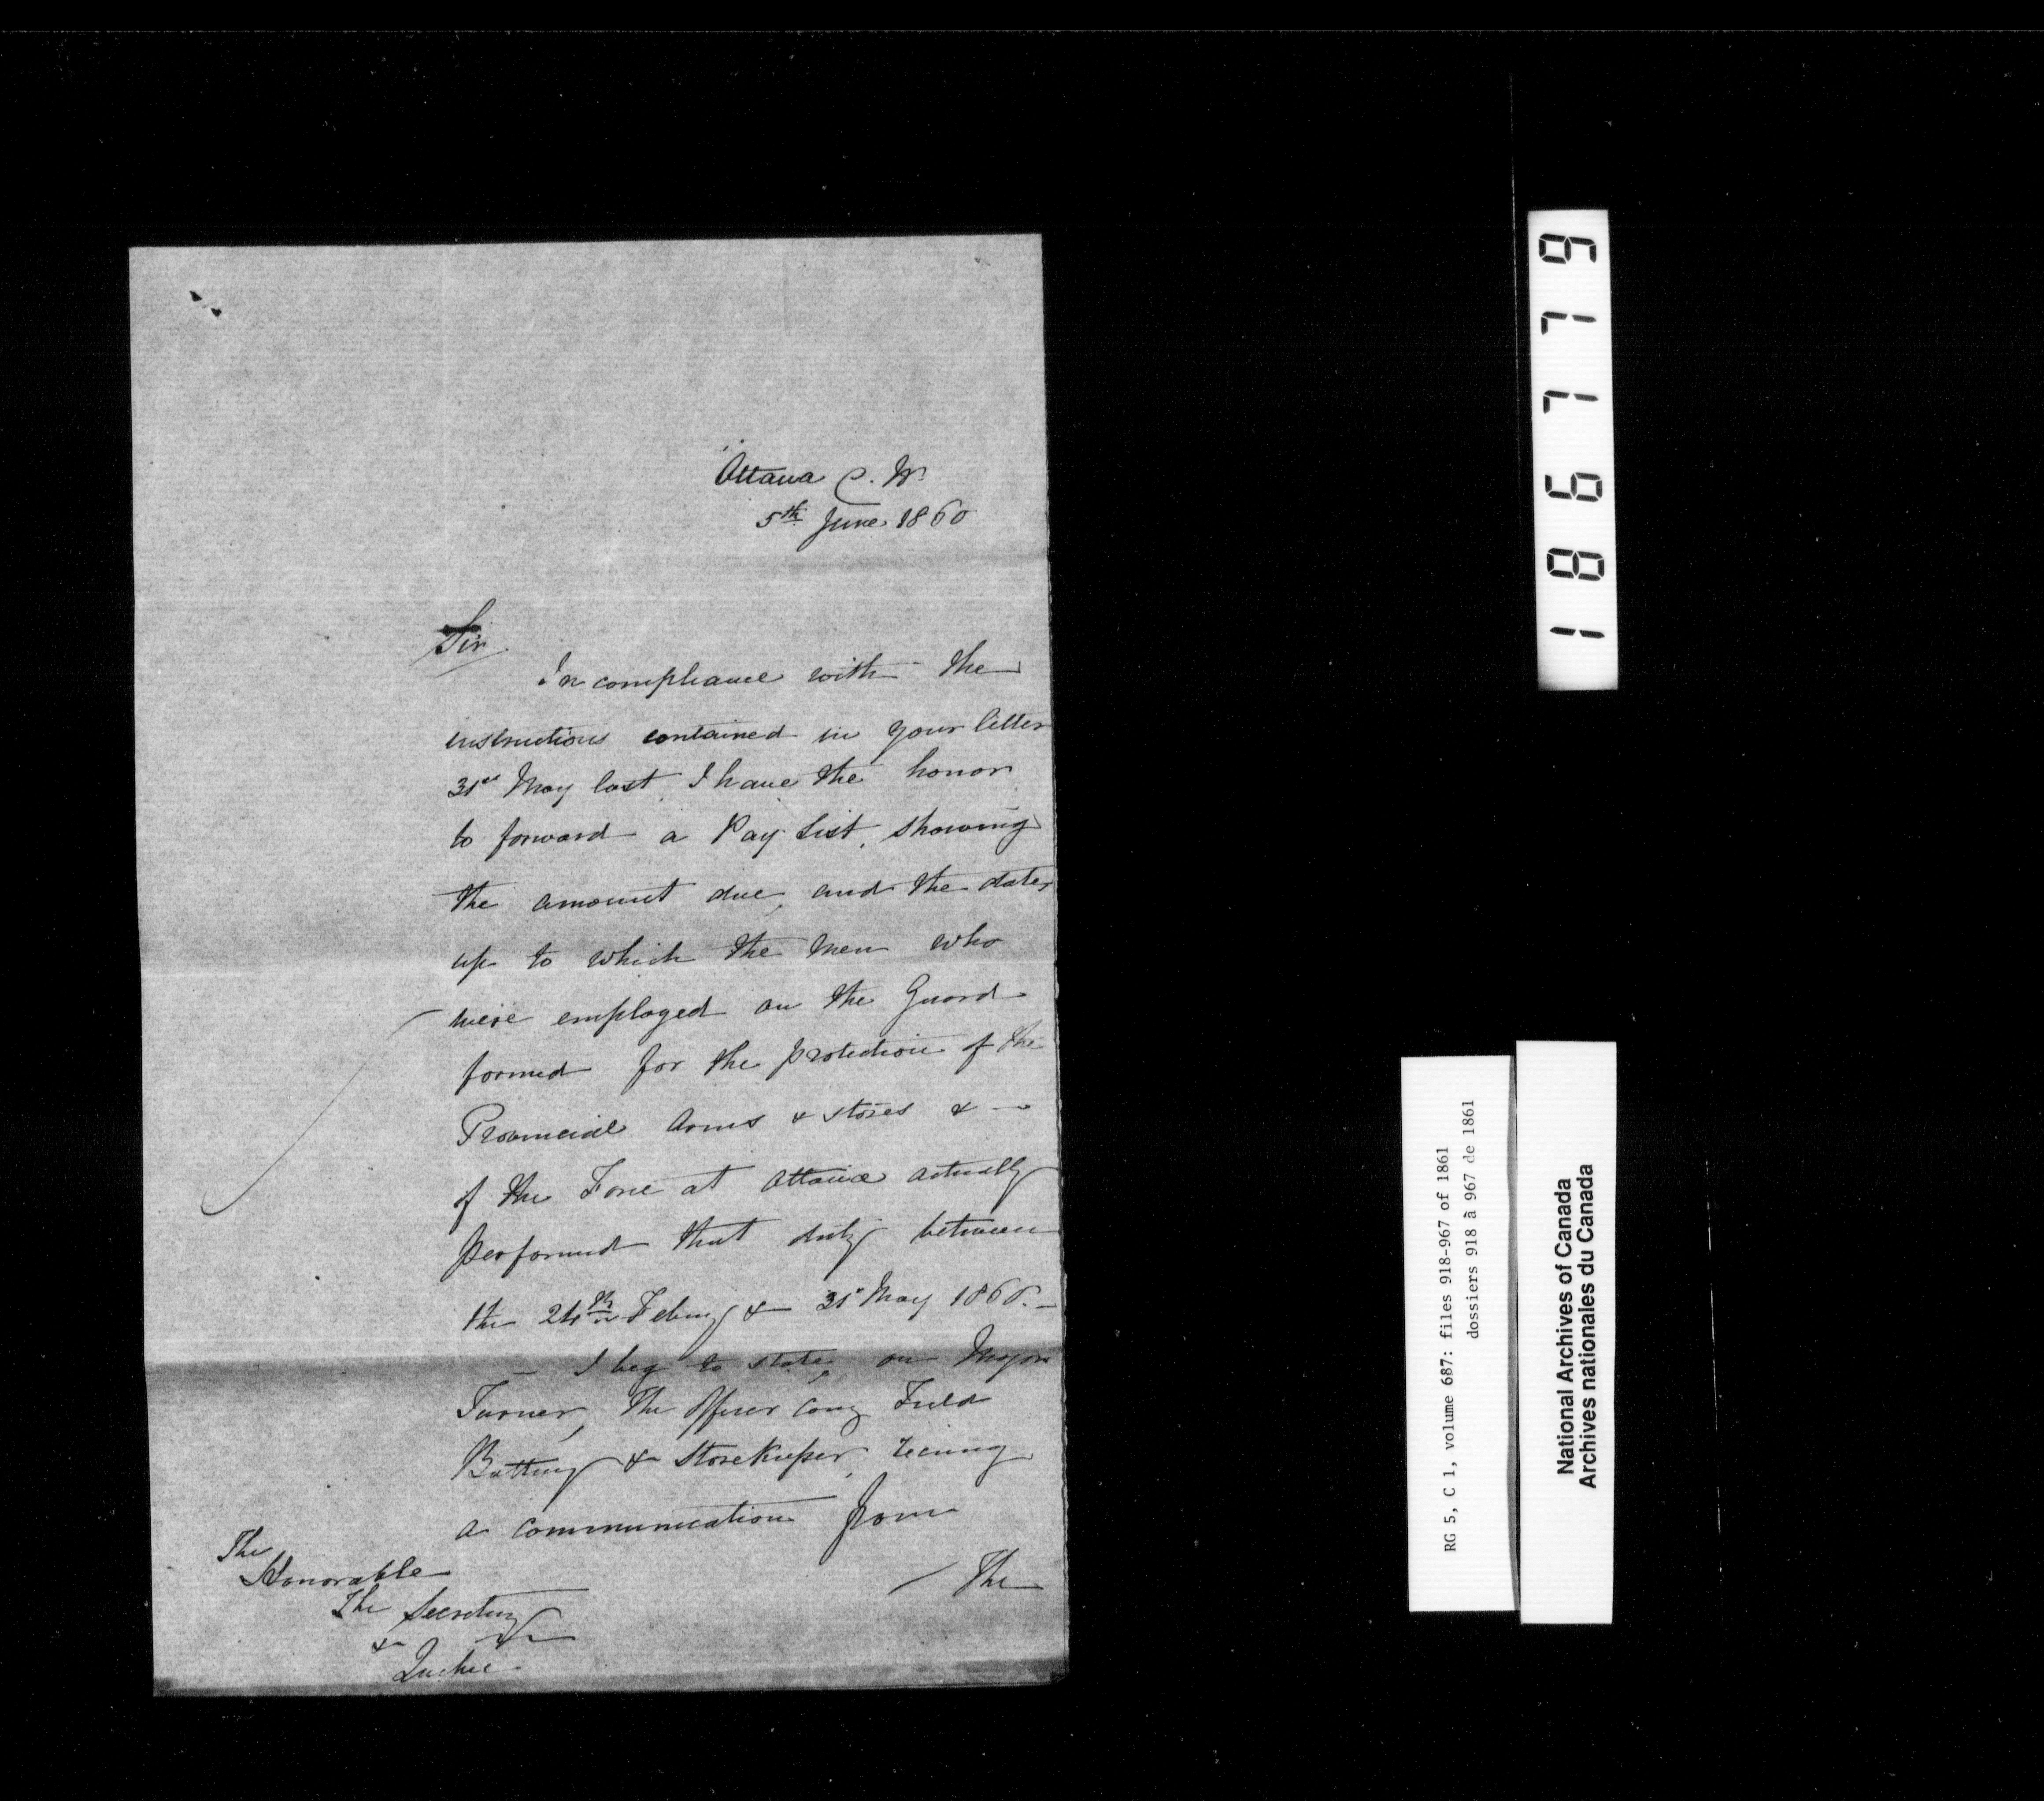 Ottawa C. W.
5th June 1860
Sir
In compliance with the
instructions contained in your letter
31st May last, I have the honor
to forward a Pay List, showing
the amount due, and the dates
up to which the men who
were employed on the Guard
formed for the protection of the
Provincial Arms & Stores &
of the Force at Ottawa actually
performed that duty between
the 24th Febury & 31st May 1860. —
— I beg to state, on Major
Turner, the Officer Comg Field
Battery & Storekeeper,
a communication from
— The
The
Honorable
The Secretary
&
Quebec
186779
RG 5, C 1, volume 687: files 918-967 of 1861
dossiers 918 à 967 de 1861
National Archives of Canada
Archives nationales du Canada